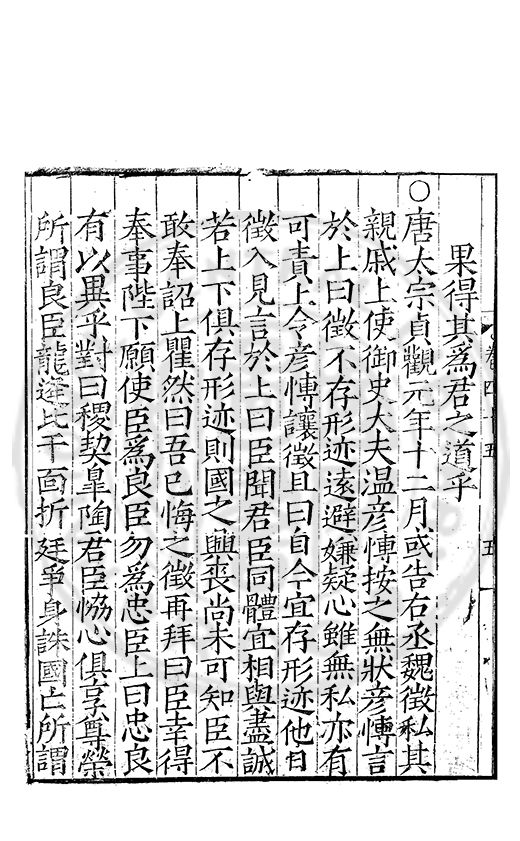 果得其爲君之道乎
○唐太宗貞觀元年十二月或告右丞魏徵私其
親戚上使御史大夫温彦愽按之無狀彦愽言
於上曰徵不存形迹遠避嫌疑心雖無私亦有
可責上令彦愽讓徵且曰自今宜存形迹他日
徵入見言於上曰臣聞君臣同體宜相與盡誠
若上下俱存形迹則國之興喪尚未可知臣不
敢奉詔上瞿然曰吾已悔之徵再拜曰臣幸得
奉事陛下願使臣爲良臣勿爲忠臣上曰忠良
有以異乎對曰稷契臯陶君臣恊心俱享尊榮
所謂良臣龍逄比干面折廷爭身誅國亡所謂
卷四十五
五